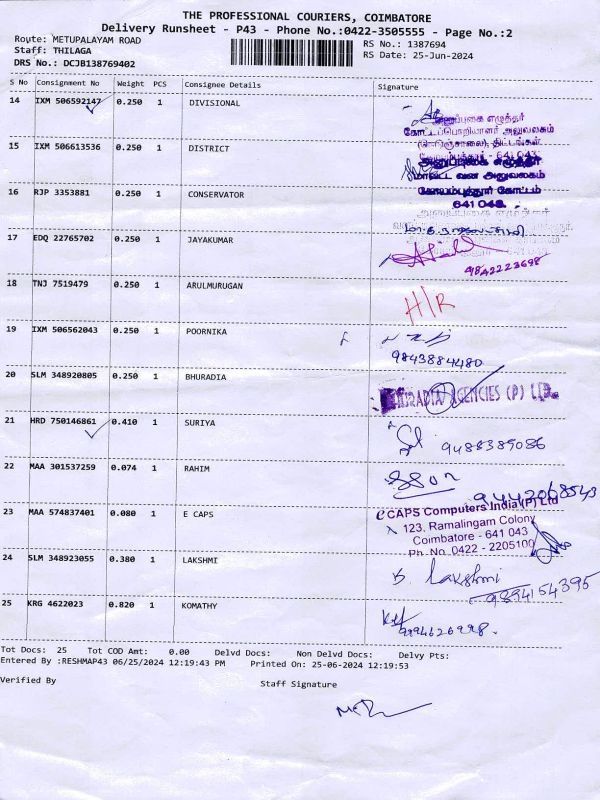 THE PROFESSIONAL COURIERS, COIMBATORE
Delivery Runsheet - P43 - Phone No.:0422-3505555 - Page No.:2
Route: METUPALAYAM ROAD
Staff: THILAGA
DRS No.: DCJB138769402
RS No.: 1387694
RS Date: 25-Jun-2024
S No Consignment No Weight PCS Consignee Details Signature
14 IXM 506592147 0.250 1 DIVISIONAL
அனுப்புகை எழுத்தர்
கோட்டப்பொறியாளர் அலுவலகம்
(நெடுஞ்சாலை), திட்டங்கள்
கோயம்புத்தூர் - 641 043
15 IXM 506613536 0.250 1 DISTRICT
அனுப்புகை எழுத்தர்
மாவட்ட வன அலுவலகம்
கோயம்புத்தூர் கோட்டம்
641 043.
16 RJP 3353881 0.250 1 CONSERVATOR
அனுப்புகை எழுத்தர்
17 EDQ 22765702 0.250 1 JAYAKUMAR
9842223698
18 TNJ 7519479 0.250 1 ARULMURUGAN
H/R
19 IXM 506562043 0.250 1 POORNIKA
9843884480
20 SLM 348920805 0.250 1 BHURADIA
BHURADIA AGENCIES (P) LTD.
21 HRD 750146861 0.410 1 SURIYA
9488389086
22 MAA 301537259 0.074 1 RAHIM
9442068543
23 MAA 574837401 0.080 1 E CAPS
eCAPS Computers India (P) Ltd
123, Ramalingam Colony
Coimbatore - 641 043
Ph. No. 0422 - 2205100
24 SLM 348923055 0.380 1 LAKSHMI
B. Lakshmi
9894154395
25 KRG 4622023 0.820 1 KOMATHY
9994626998.
Tot Docs: 25 Tot COD Amt: 0.00 Delvd Docs: Non Delvd Docs: Delvy Pts:
Entered By :RESHMAP43 06/25/2024 12:19:43 PM Printed On: 25-06-2024 12:19:53
Verified By Staff Signature